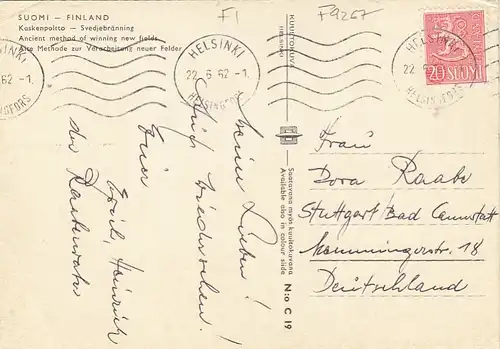 SUOMI – FINLAND
Kaskenpoltto – Svedjebränning
Ancient method of winning new fields
Alte Methode zur Verarbeitung neuer Felder
F1
F9267
HELSINKI
62 -1.
HELSINKI
22.6.62 -1.
HELSINGFORS
HELSINKI
22.6
HELSINGFORS
20 SUOMI
KUULTOKUVA
HELSINKI
Saatavana myös kuultokuvana
Available also in colour slide
N:o C 19
meine Lieben!
Auf Wiedersehen!
Euer
Heinrich
der
Frau
Dora Raabe
Stuttgart Bad Cannstatt
18
Deutschland